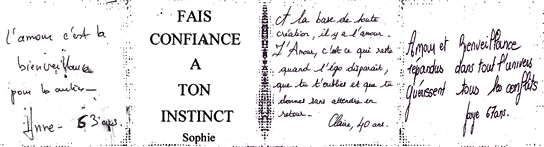 L'amour c'est la
bienveillance
pour les autres
Anne - 53 ans
FAIS
CONFIANCE
A
TON
INSTINCT
Sophie
A la base de toute
création, il y a l'amour.
L'Amour, c'est ce qui reste
quand l'égo disparaît,
que tu t'oublies et que tu
donnes sans attendre en
retour.
Claire, 40 ans.
Amour et bienveillance
répandus dans tout l'univers
guérissent tous les conflits
67 ans.